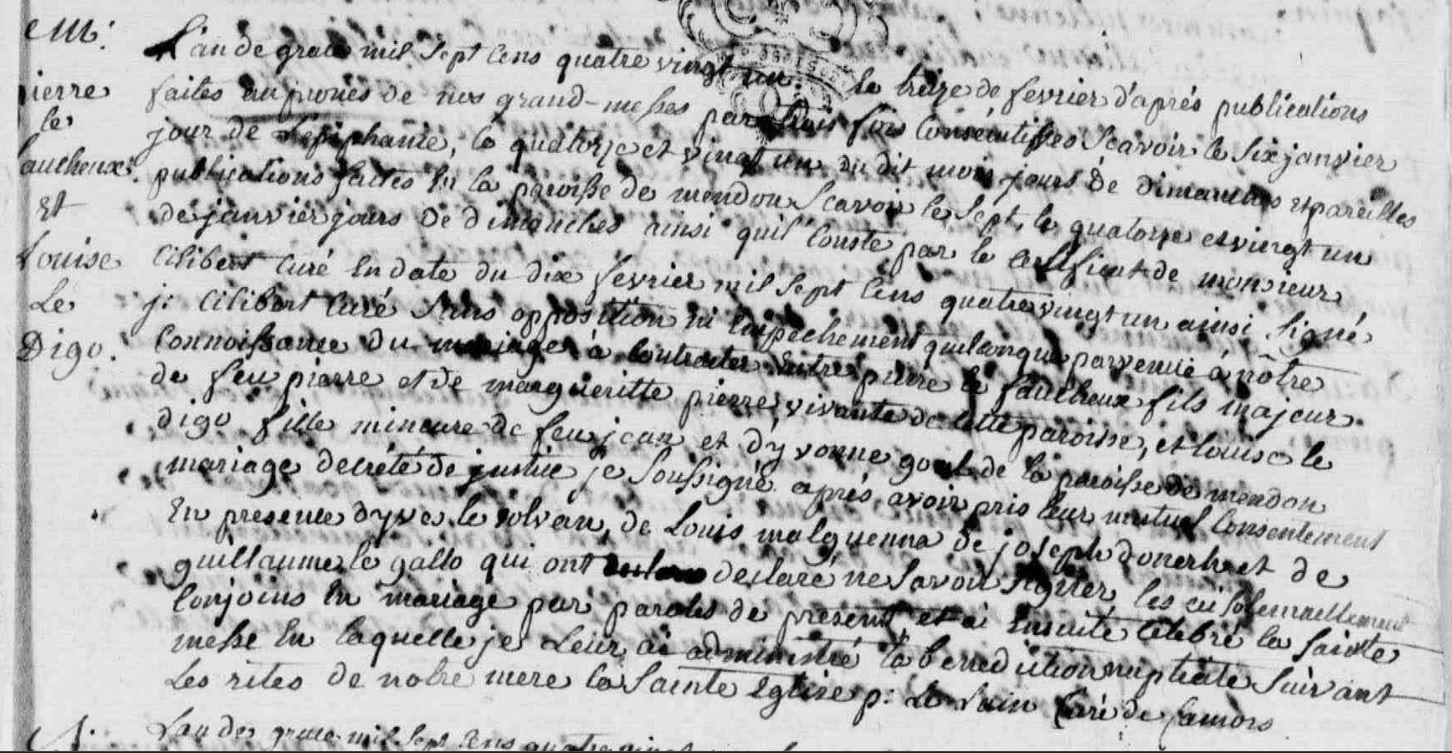 M:
pierre
le
faucheux.
Et
Louise
Le
Digo.
L'an de grace mil sept cens quatre vingt un. le treize de février d'aprés publications
faites au prones de nos grand-messes par trois fois consécutifes scavoir le six janvier
jour de L'epiphanie, le quatorze et vingt un du dit mois jours de dimanches et pareilles
publications faites En la paroisse de mendon Scavoir le sept, le quatorze et vingt un
de janvier jours De dimanches ainsi quil conste par le certificat de monsieur
Cilibert curé En date du dix février mil sept cens quatre vingt un ainsi signé
j. Cilibert curé sans opposition ni Empechement quelconque parvenue à nôtre
Connoissance du mariage à contracter Entre pierre le faucheux fils majeur
de feu pierre et de margueritte pierre vivante de cette paroisse, et louise le
digo fille mineure de feu jean et d'yvonne de la paroisse de mendon
mariage decrété de justice je soussigné aprés avoir pris leur mutuel Consentement
En presence d'yve le, de Louis de joseph et de
guillaume le gallo qui ont declaré ne savoir signer les ai solemnellement
Conjoins En mariage par paroles de présent et ai Ensuite célébré la sainte
messe En laquelle je Leur ai administré la benediction nuptiale suivant
Les rites de notre mere la Sainte Eglise p: Curé de Camors
L'an de grace mil sept cens quatre vingt